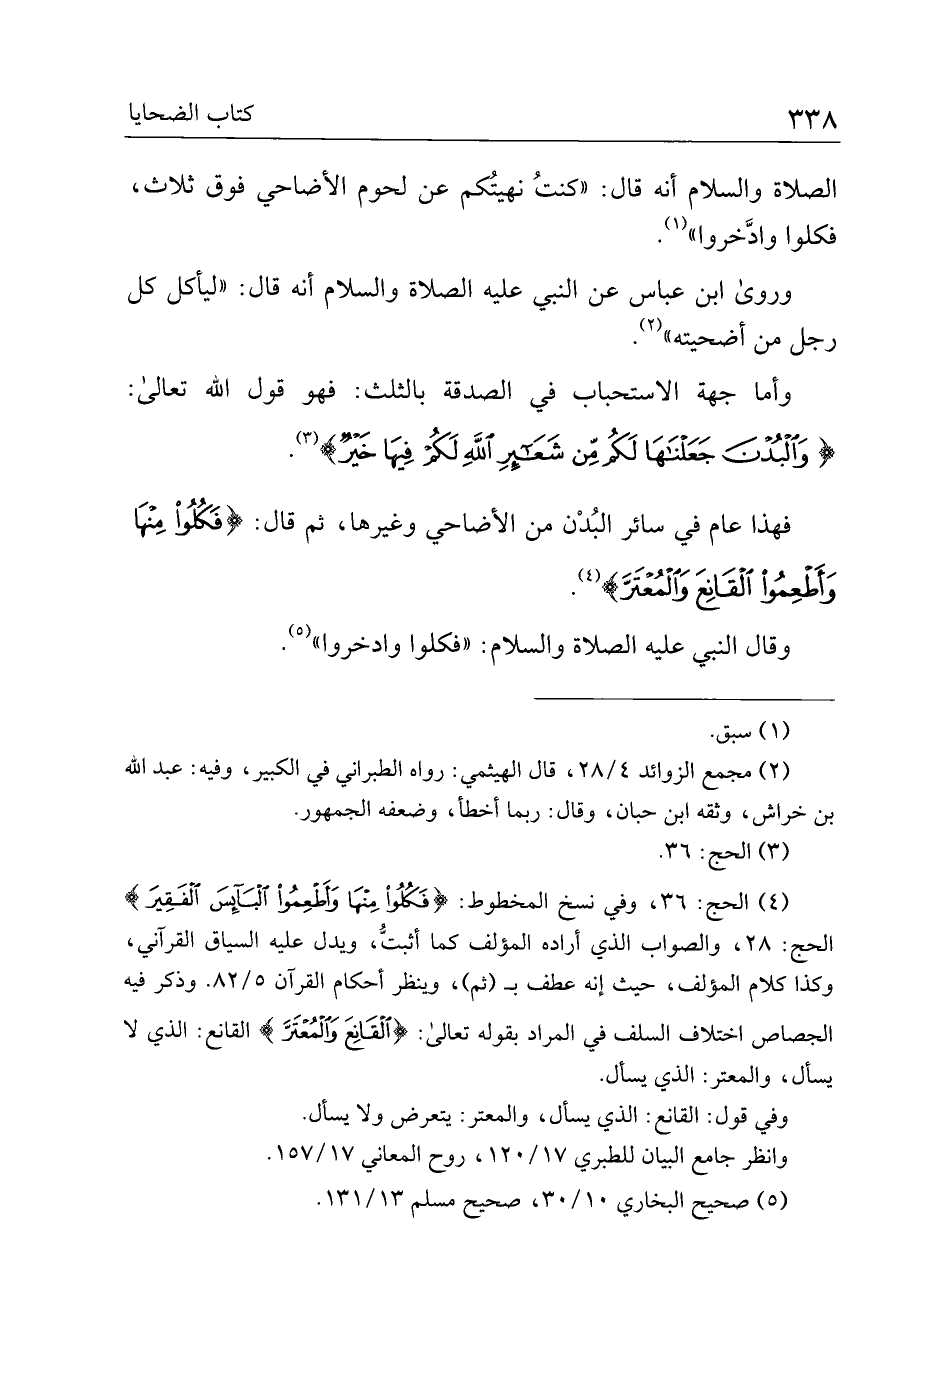 ٣٣٨ كتاب الضحايا
الصلاة والسلام أنه قال: «كنتُ نهيتُكم عن لحوم الأضاحي فوق ثلاث،
فكلوا وادَّخروا»(١).
وروىٰ ابن عباس عن النبي عليه الصلاة والسلام أنه قال: «ليأكل كل
رجل من أضحيته»(٢).
وأما جهة الاستحباب في الصدقة بالثلث: فهو قول الله تعالىٰ:
﴿وَٱلْبُدْنَ جَعَلْنَٰهَا لَكُم مِّن شَعَٰٓئِرِ ٱللَّهِ لَكُمْ فِيهَا خَيْرٌ﴾(٣).
فهذا عام في سائر البُدْن من الأضاحي وغيرها، ثم قال: ﴿فَكُلُوا۟ مِنْهَا
وَأَطْعِمُوا۟ ٱلْقَانِعَ وَٱلْمُعْتَرَّ﴾(٤).
وقال النبي عليه الصلاة والسلام: «فكلوا وادخروا»(٥).
(١) سبق.
(٢) مجمع الزوائد ٢٨/٤، قال الهيثمي: رواه الطبراني في الكبير، وفيه: عبد الله
بن خراش، وثقه ابن حبان، وقال: ربما أخطأ، وضعفه الجمهور.
(٣) الحج: ٣٦.
(٤) الحج: ٣٦، وفي نسخ المخطوط: ﴿فَكُلُوا۟ مِنْهَا وَأَطْعِمُوا۟ ٱلْبَآئِسَ ٱلْفَقِيرَ﴾
الحج: ٢٨، والصواب الذي أراده المؤلف كما أثبتُّ، ويدل عليه السياق القرآني،
وكذا كلام المؤلف، حيث إنه عطف بـ (ثم)، وينظر أحكام القرآن ٨٢/٥. وذكر فيه
الجصاص اختلاف السلف في المراد بقوله تعالىٰ: ﴿ٱلْقَانِعَ وَٱلْمُعْتَرَّ﴾ القانع: الذي لا
يسأل، والمعتر: الذي يسأل.
وفي قول: القانع: الذي يسأل، والمعتر: يتعرض ولا يسأل.
وانظر جامع البيان للطبري ١٢٠/١٧، روح المعاني ١٥٧/١٧.
(٥) صحيح البخاري ٣٠/١٠، صحيح مسلم ١٣١/١٣.